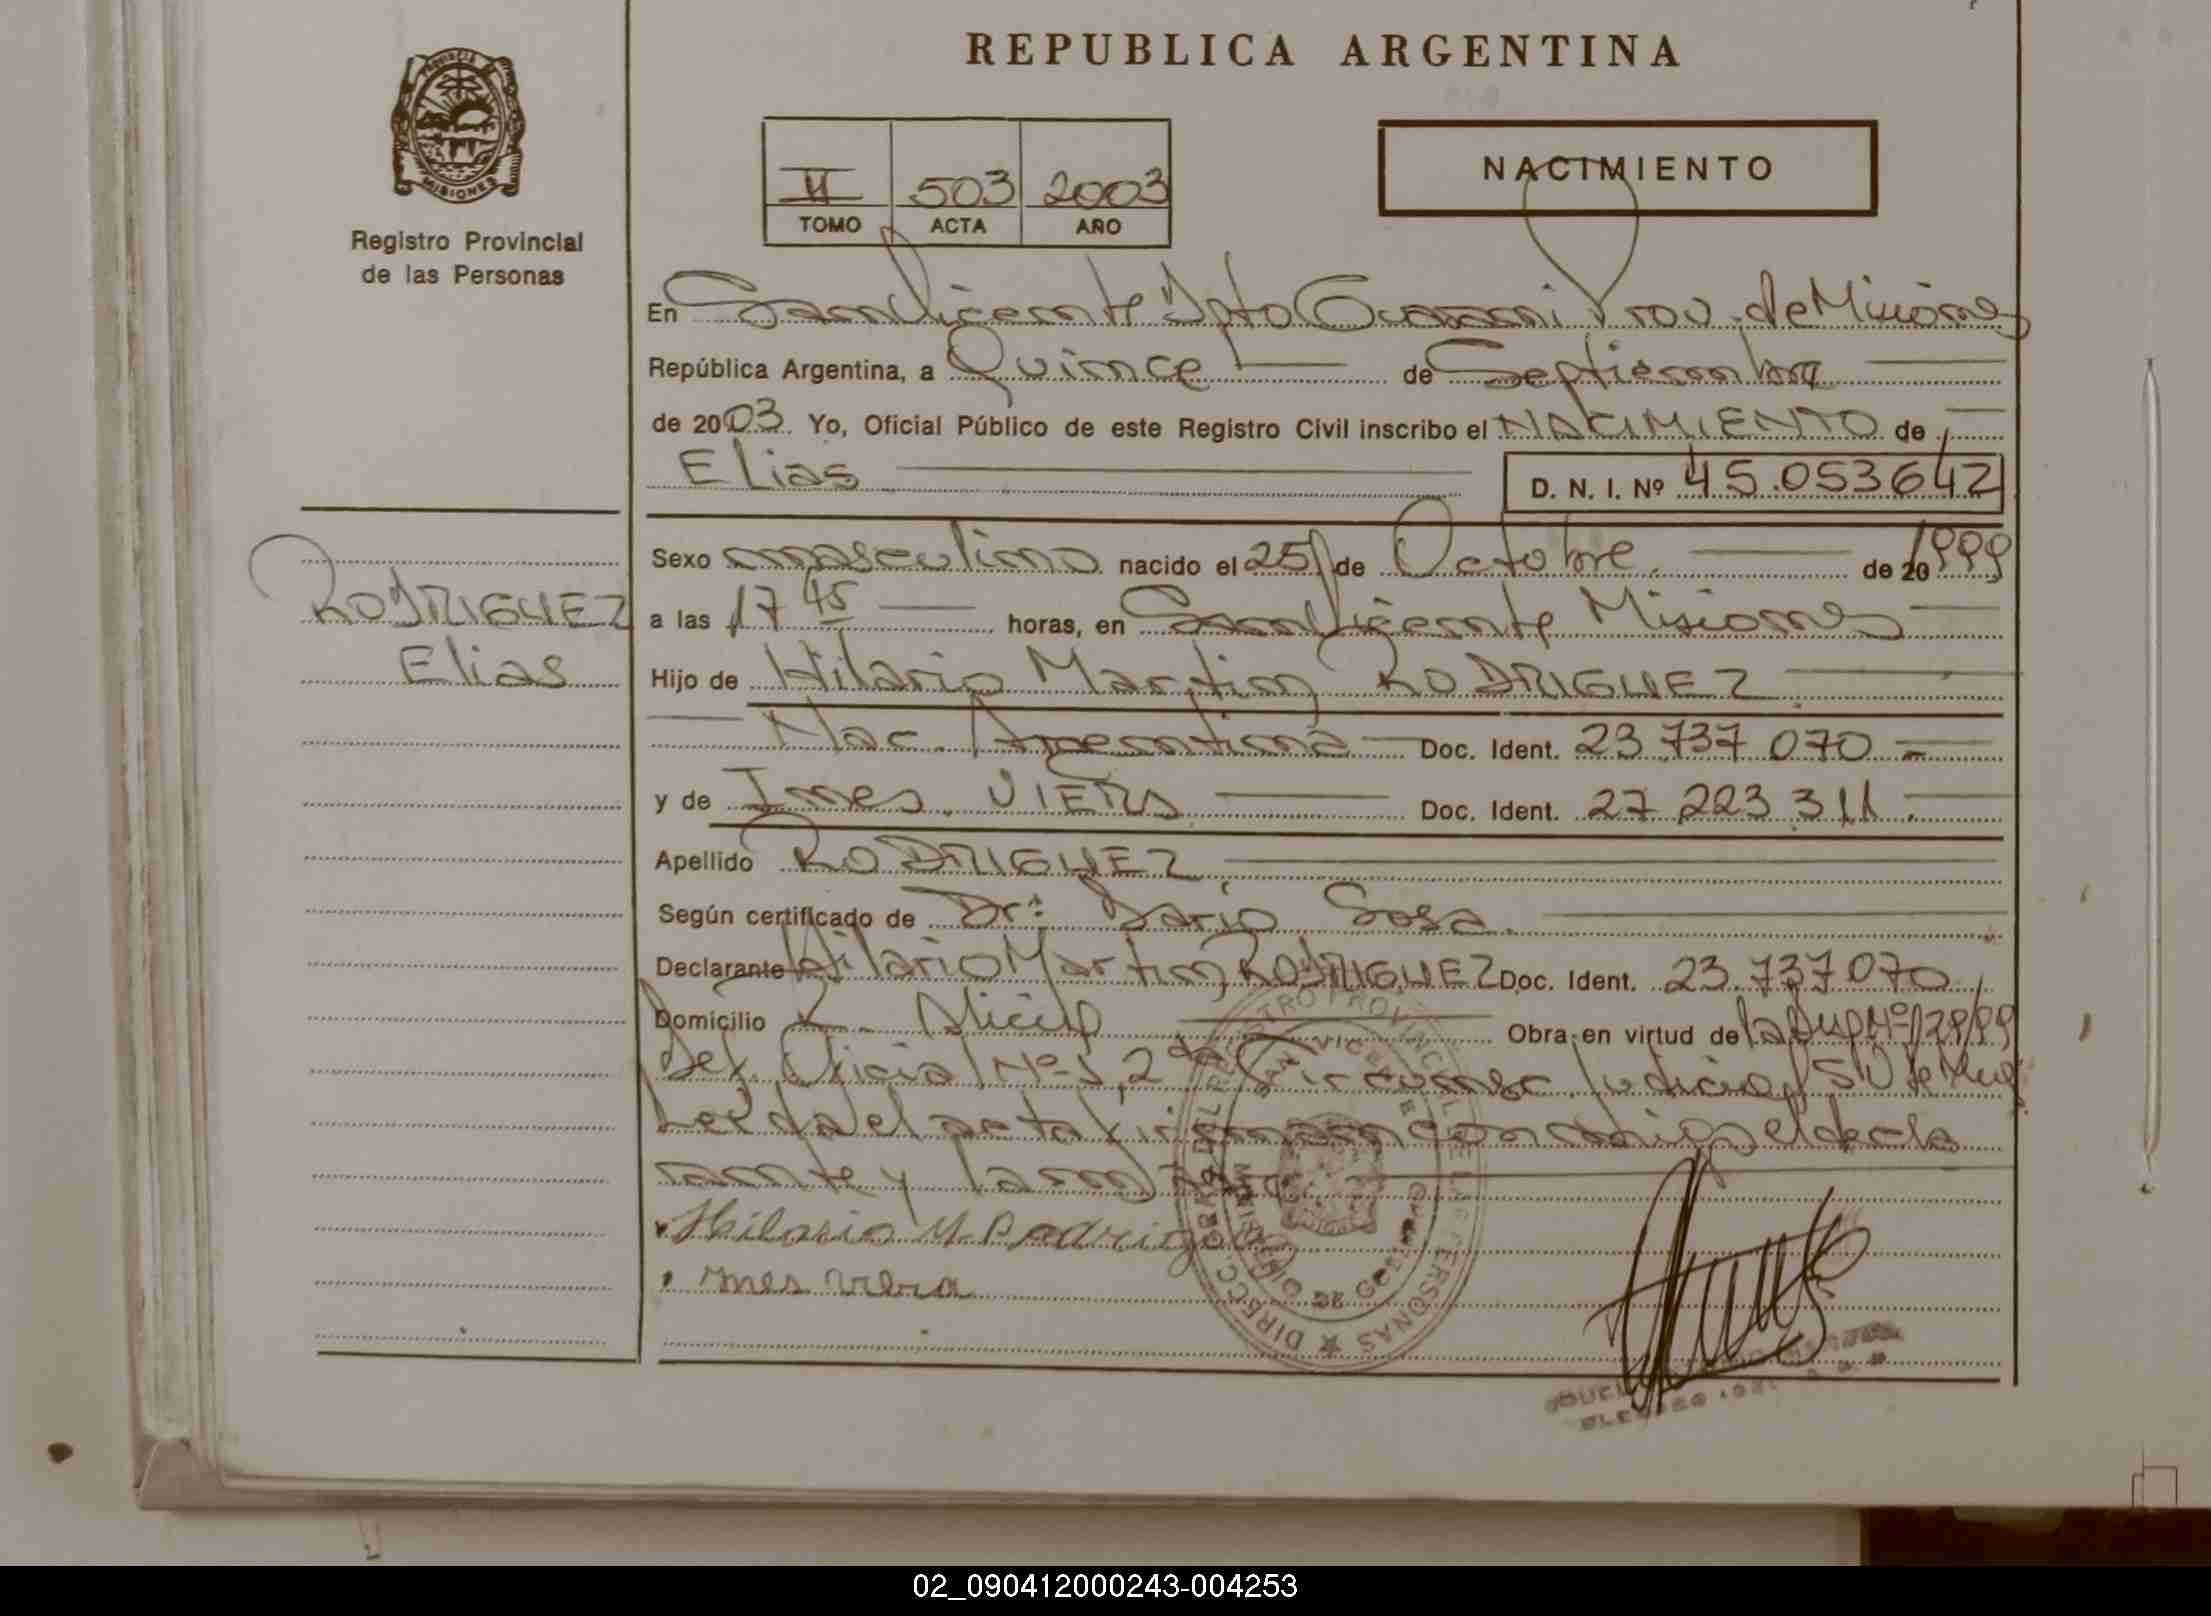 REPUBLICA ARGENTINA
PROVINCIA DE
MISIONES
Registro Provincial
de las Personas
II 503 2003
TOMO ACTA AÑO
NACIMIENTO
En San Vicente Dpto Guarani Prov. de Misiones
República Argentina, a Quince de Septiembre
de 2003. Yo, Oficial Público de este Registro Civil inscribo el NACIMIENTO de
Elias D. N. I. Nº 45.053642
RODRIGUEZ
Elias
Sexo masculino nacido el 25 de Octubre de 20 1999
a las 17 45 horas, en San Vicente Misiones
Hijo de Hilario Martin RODRIGUEZ
Nac. Argentina Doc. Ident. 23.737.070
y de Ines VIERA Doc. Ident. 27.223.311
Apellido RODRIGUEZ
Según certificado de Dr: Dario Sosa
Declarante Hilario Martin RODRIGUEZ Doc. Ident. 23.737.070
Domicilio Obra en virtud de la
Def. Oficial Nº 2da Circunsc. Judicial
Leida el acta firman conmigo el decla
rante y la
Hilario M. Rodrigo
ines viera
SAN VICENTE
02_090412000243-004253